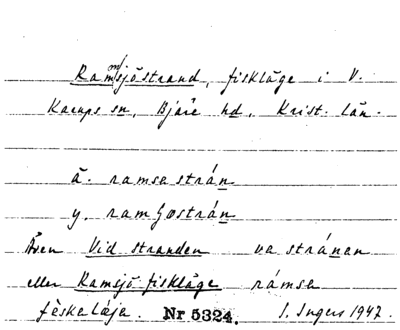 Rammsjöstrand, fiskläge i V.
Karups sn, Bjäre hd, Krist. län.
ä. ramsastrán
y. ramʃøstrán
Även Vid stranden va stránan
eller Ramsjö fiskläge rámsa
fèskelája. Nr 5324. I. Ingers 1947.